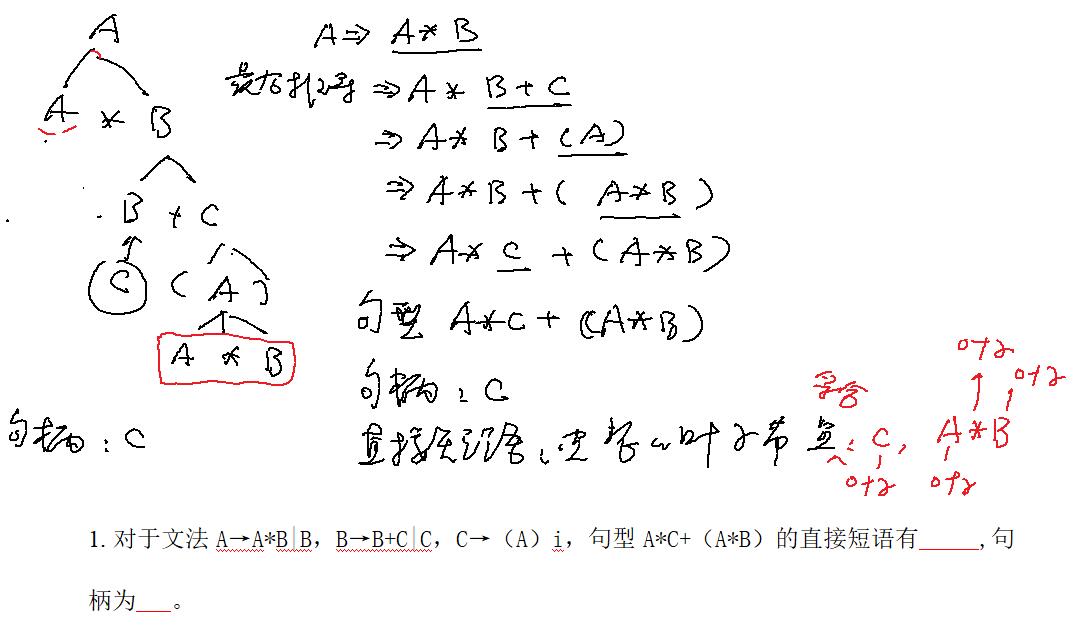 A
A * B
B + C
C ( A )
A * B
句柄：C
A ⇒ A * B
最右推导 ⇒ A * B + C
⇒ A * B + (A)
⇒ A * B + ( A * B )
⇒ A * C + (A * B)
句型 A*C + (A*B)
句柄：C
直接短语：完整的叶子节点：C, A*B
叶子
叶子
叶子
叶子
1. 对于文法 A→A*B|B，B→B+C|C，C→（A）i，句型 A*C+（A*B）的直接短语有_____,句
柄为___。